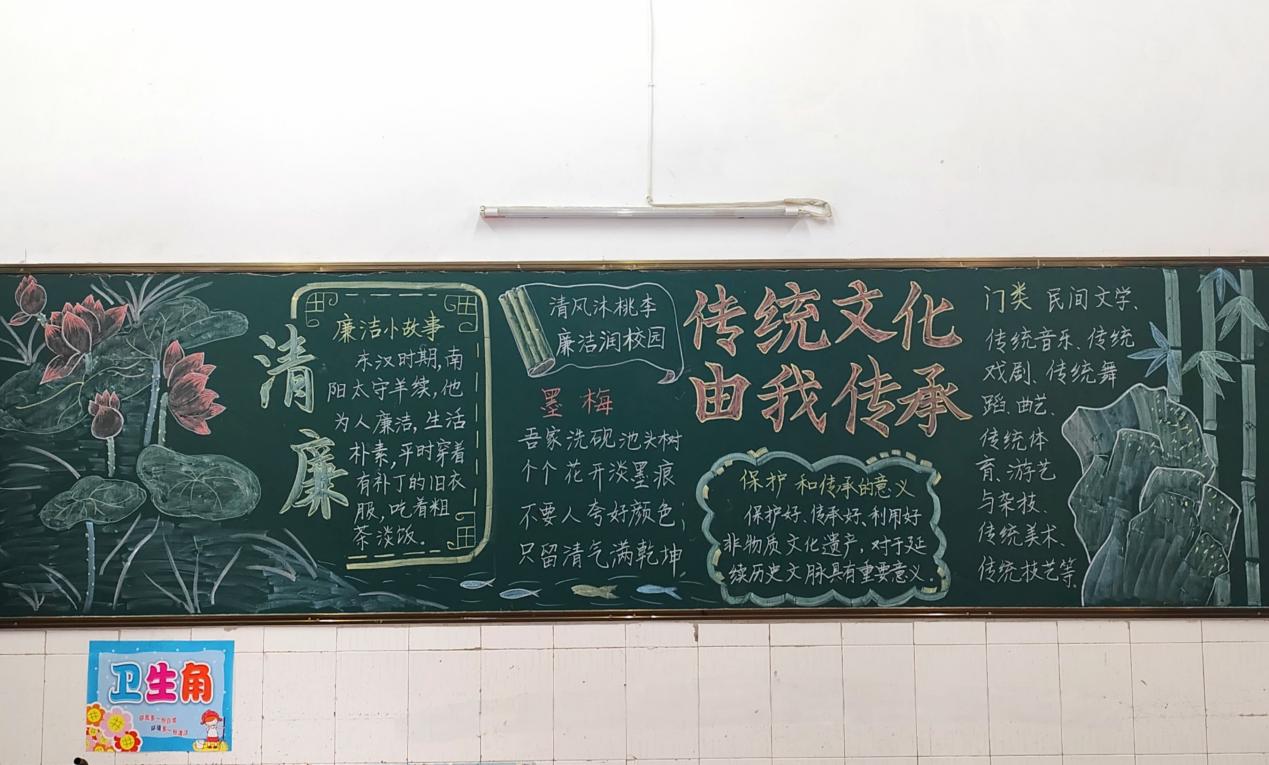 清廉
廉洁小故事
东汉时期,南
阳太守羊续,他
为人廉洁,生活
朴素,平时穿着
有补丁的旧衣
服、吃着粗
茶淡饭.
清风沐桃李
廉洁润校园
墨梅
吾家洗砚池头树
个个花开淡墨痕
不要人夸好颜色;
只留清气满乾坤.
传统文化
由我传承
保护和传承的意义
保护好、传承好、利用好
非物质文化遗产,对于延
续历史文脉具有重要意义.
门类 民间文学、
传统音乐、传统
戏剧、传统舞
蹈、曲艺、
传统体
育、游艺
与杂技、
传统美术、
传统技艺等.
卫生角